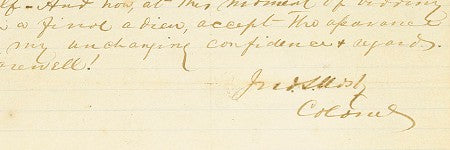 lf. And now, at this moment of bidding
a final adieu, accept the assurance
my unchanging confidence & regard.
rewell!
Jno. S. Mosby
Colonel